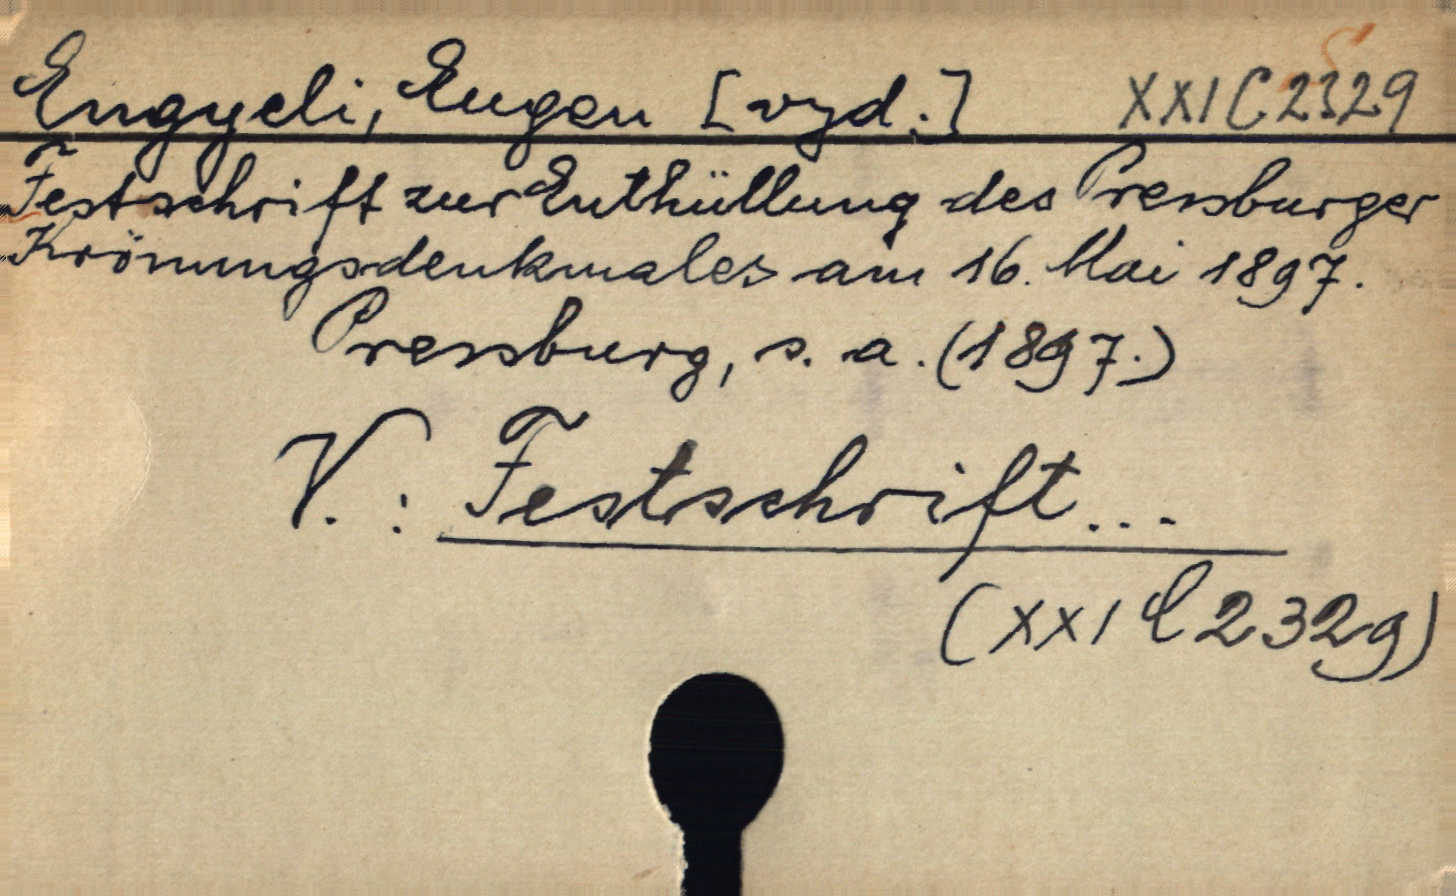 Engyeli, Eugen [vyd.] XXI C 2329
Festschrift zur Enthüllung des Pressburger
Krönungsdenkmales am 16. Mai 1897.
Pressburg, s. a. (1897.)
V. : Festschrift...
(XXI C 2329)